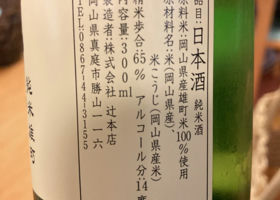 品目：日本酒 純米酒
原料米：岡山県産雄町米100％使用
原材料名：米（岡山県産）、
米こうじ（岡山県産米）
精米歩合：65％ アルコール分：14度
内容量：300ml
製造者：株式会社 辻本店
岡山県真庭市勝山116
TEL:0867443155
純米雄町